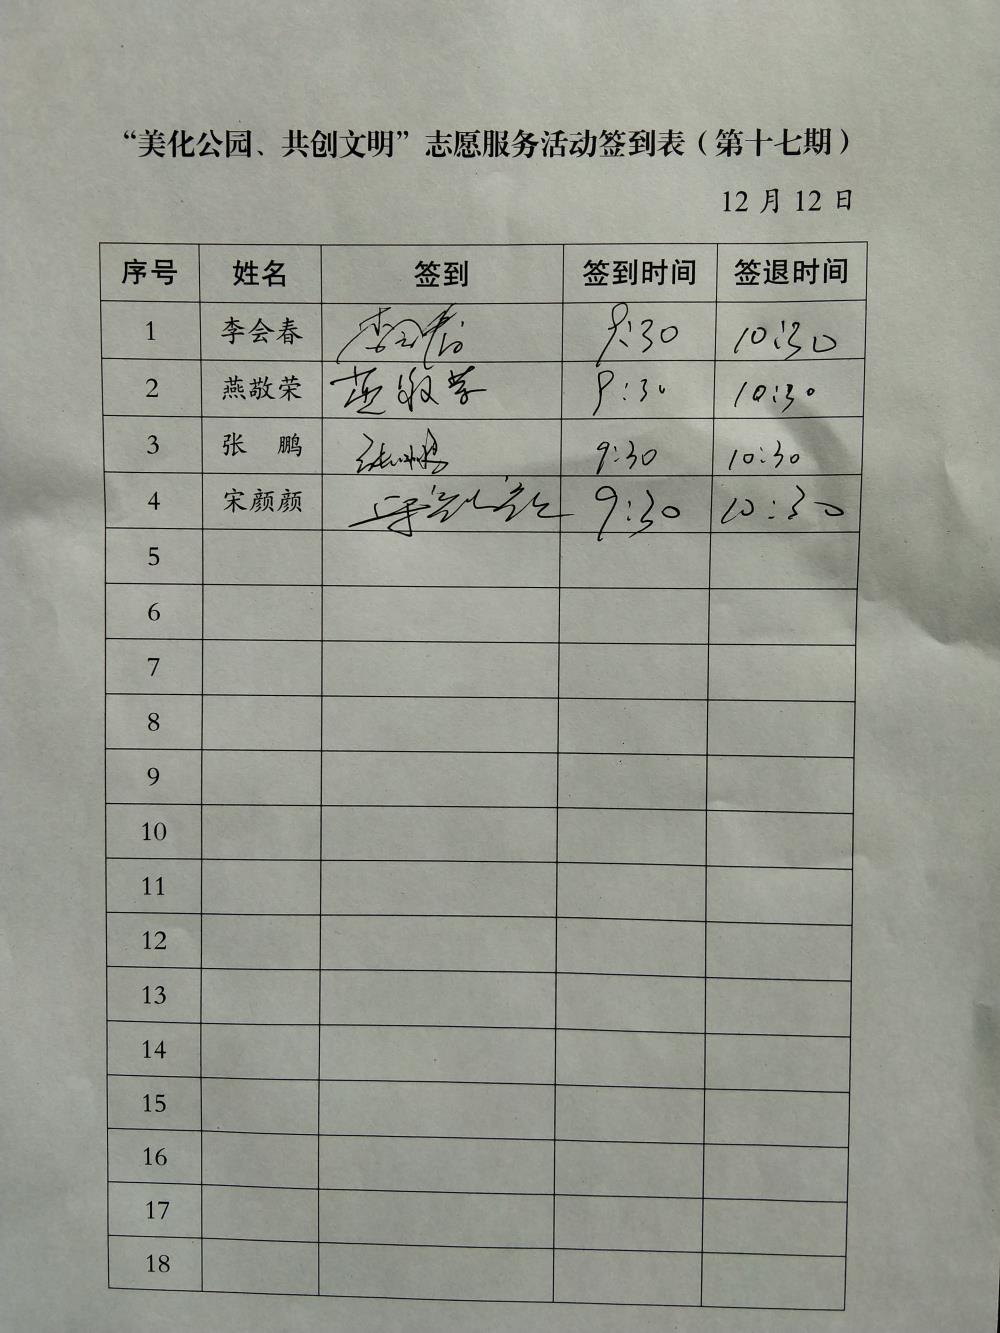 “美化公园、共创文明”志愿服务活动签到表（第十七期）
12 月 12 日
序号 姓名 签到 签到时间 签退时间
1 李会春 李会春 9:30 10:30
2 燕敬荣 燕敬荣 9:30 10:30
3 张 鹏 张鹏 9:30 10:30
4 宋颜颜 宋颜颜 9:30 10:30
5
6
7
8
9
10
11
12
13
14
15
16
17
18